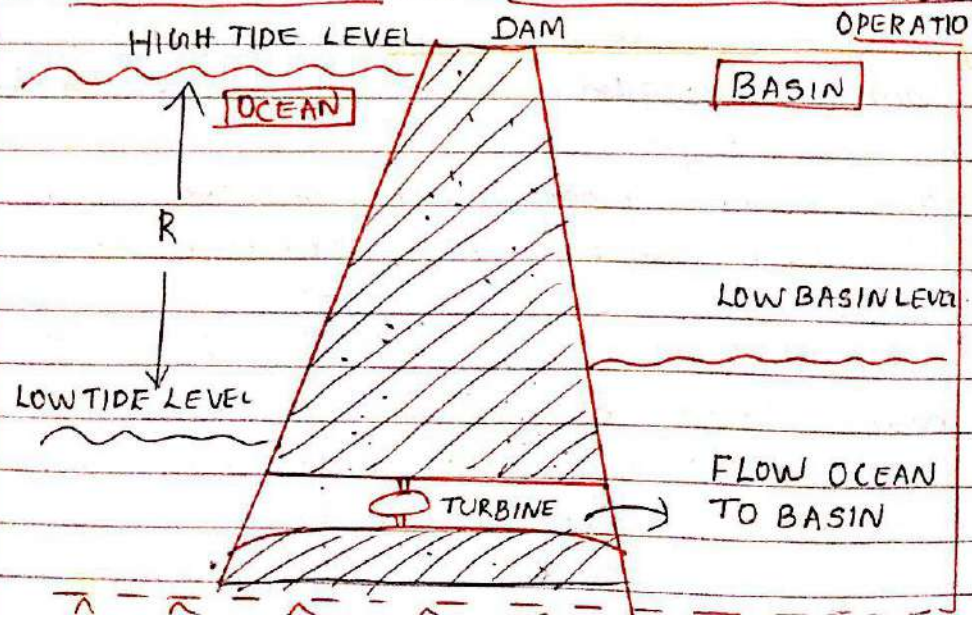 OPERATIO
HIGH TIDE LEVEL
DAM
OCEAN
BASIN
R
LOW BASIN LEVEL
LOW TIDE LEVEL
TURBINE
FLOW OCEAN
TO BASIN